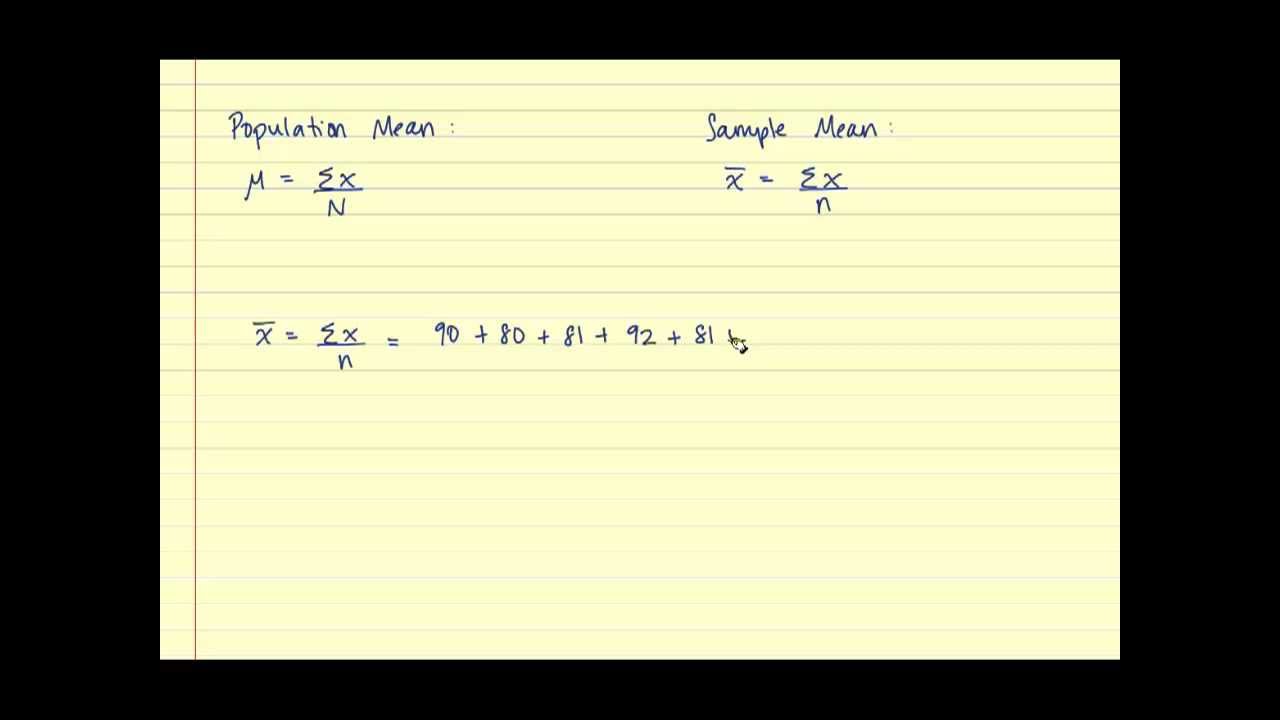 Population Mean :
Sample Mean :
μ = Σx / N
x̄ = Σx / n
x̄ = Σx / n = 90 + 80 + 81 + 92 + 81 +